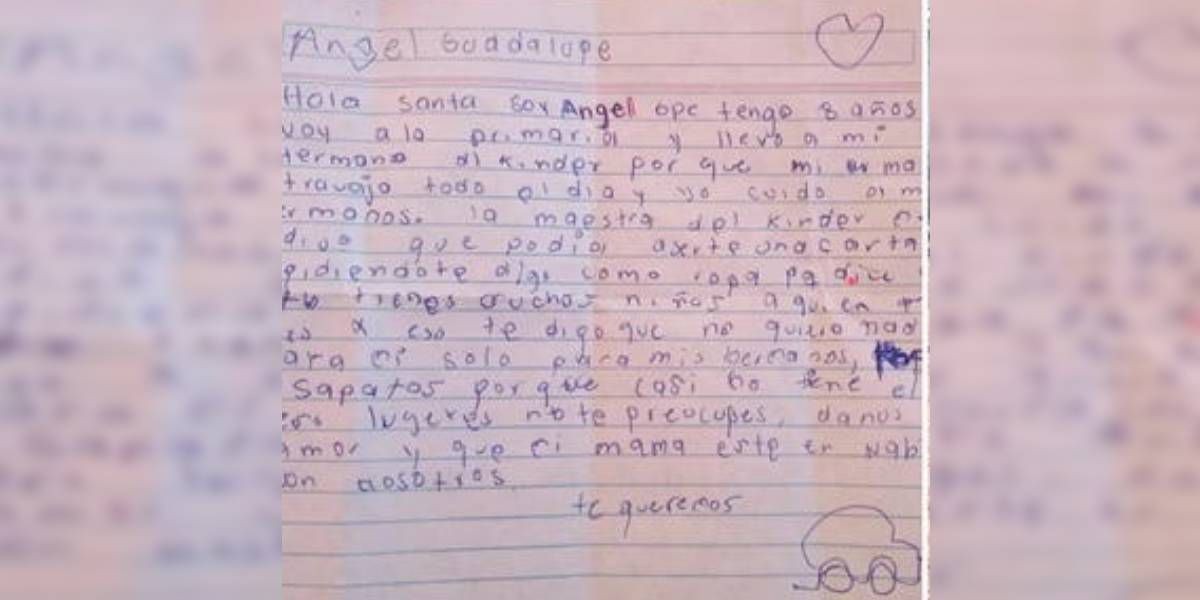 Angel Guadalupe
Hola santa soy Angel ope tengo 8 años
voy a la primaria y llevo a mi
ermano al kinder por que mi ma
travaja todo el dia y yo cuido a m
ermanos. la maestra del kinder
digo que podia aserte una carta
pidiendote algo como ropa pa
tienes muchos niños a quien
es x eso te digo que no quiero nad
ara mi solo para mis hermanos,
sapatos porque casi no tene el
lugeres no te preocupes, danos
amor y que mi mama este en nab
on nosotros
te queremos